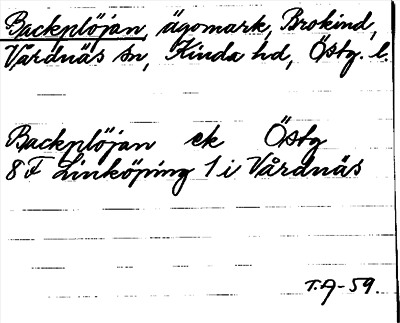 Backplöjan, ägomark, Brokind,
Vårdnäs sn, Kinda hd, Östg. l.
Backplöjan ek Östg
8 F Linköping 1 i Vårdnäs
T.A-59.